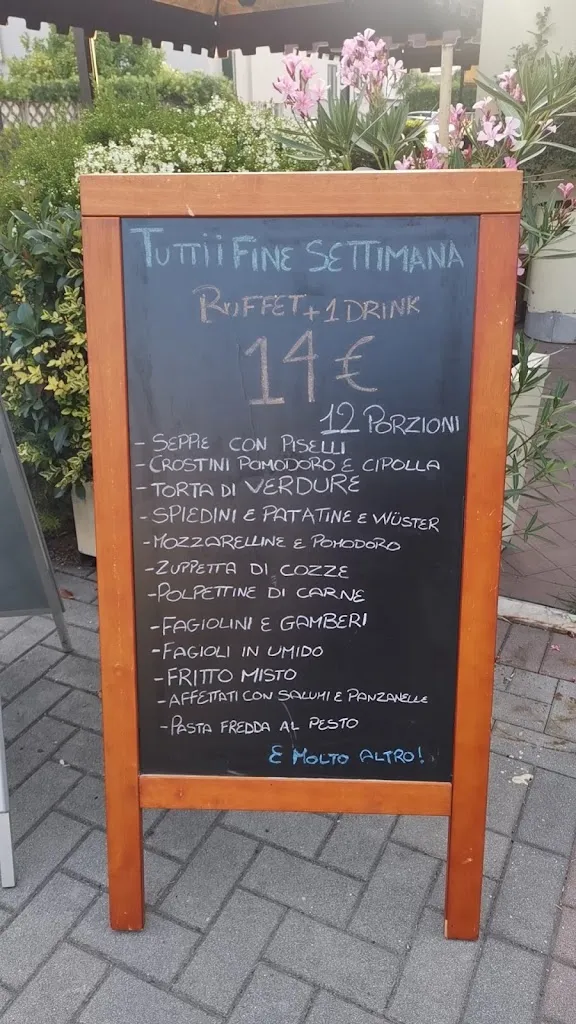 TUTTI i FINE SETTIMANA
BUFFET + 1 DRINK
14 €
12 PORZIONI
- SEPPIE CON PISELLI
- CROSTINI POMODORO E CIPOLLA
- TORTA DI VERDURE
- SPIEDINI E PATATINE E WÜSTER
- MOZZARELLINE E POMODORO
- ZUPPETTA DI COZZE
- POLPETTINE DI CARNE
- FAGIOLINI E GAMBERI
- FAGIOLI IN UMIDO
- FRITTO MISTO
- AFFETTATI CON SALUMI E PANZANELLE
- PASTA FREDDA AL PESTO
E MOLTO ALTRO!